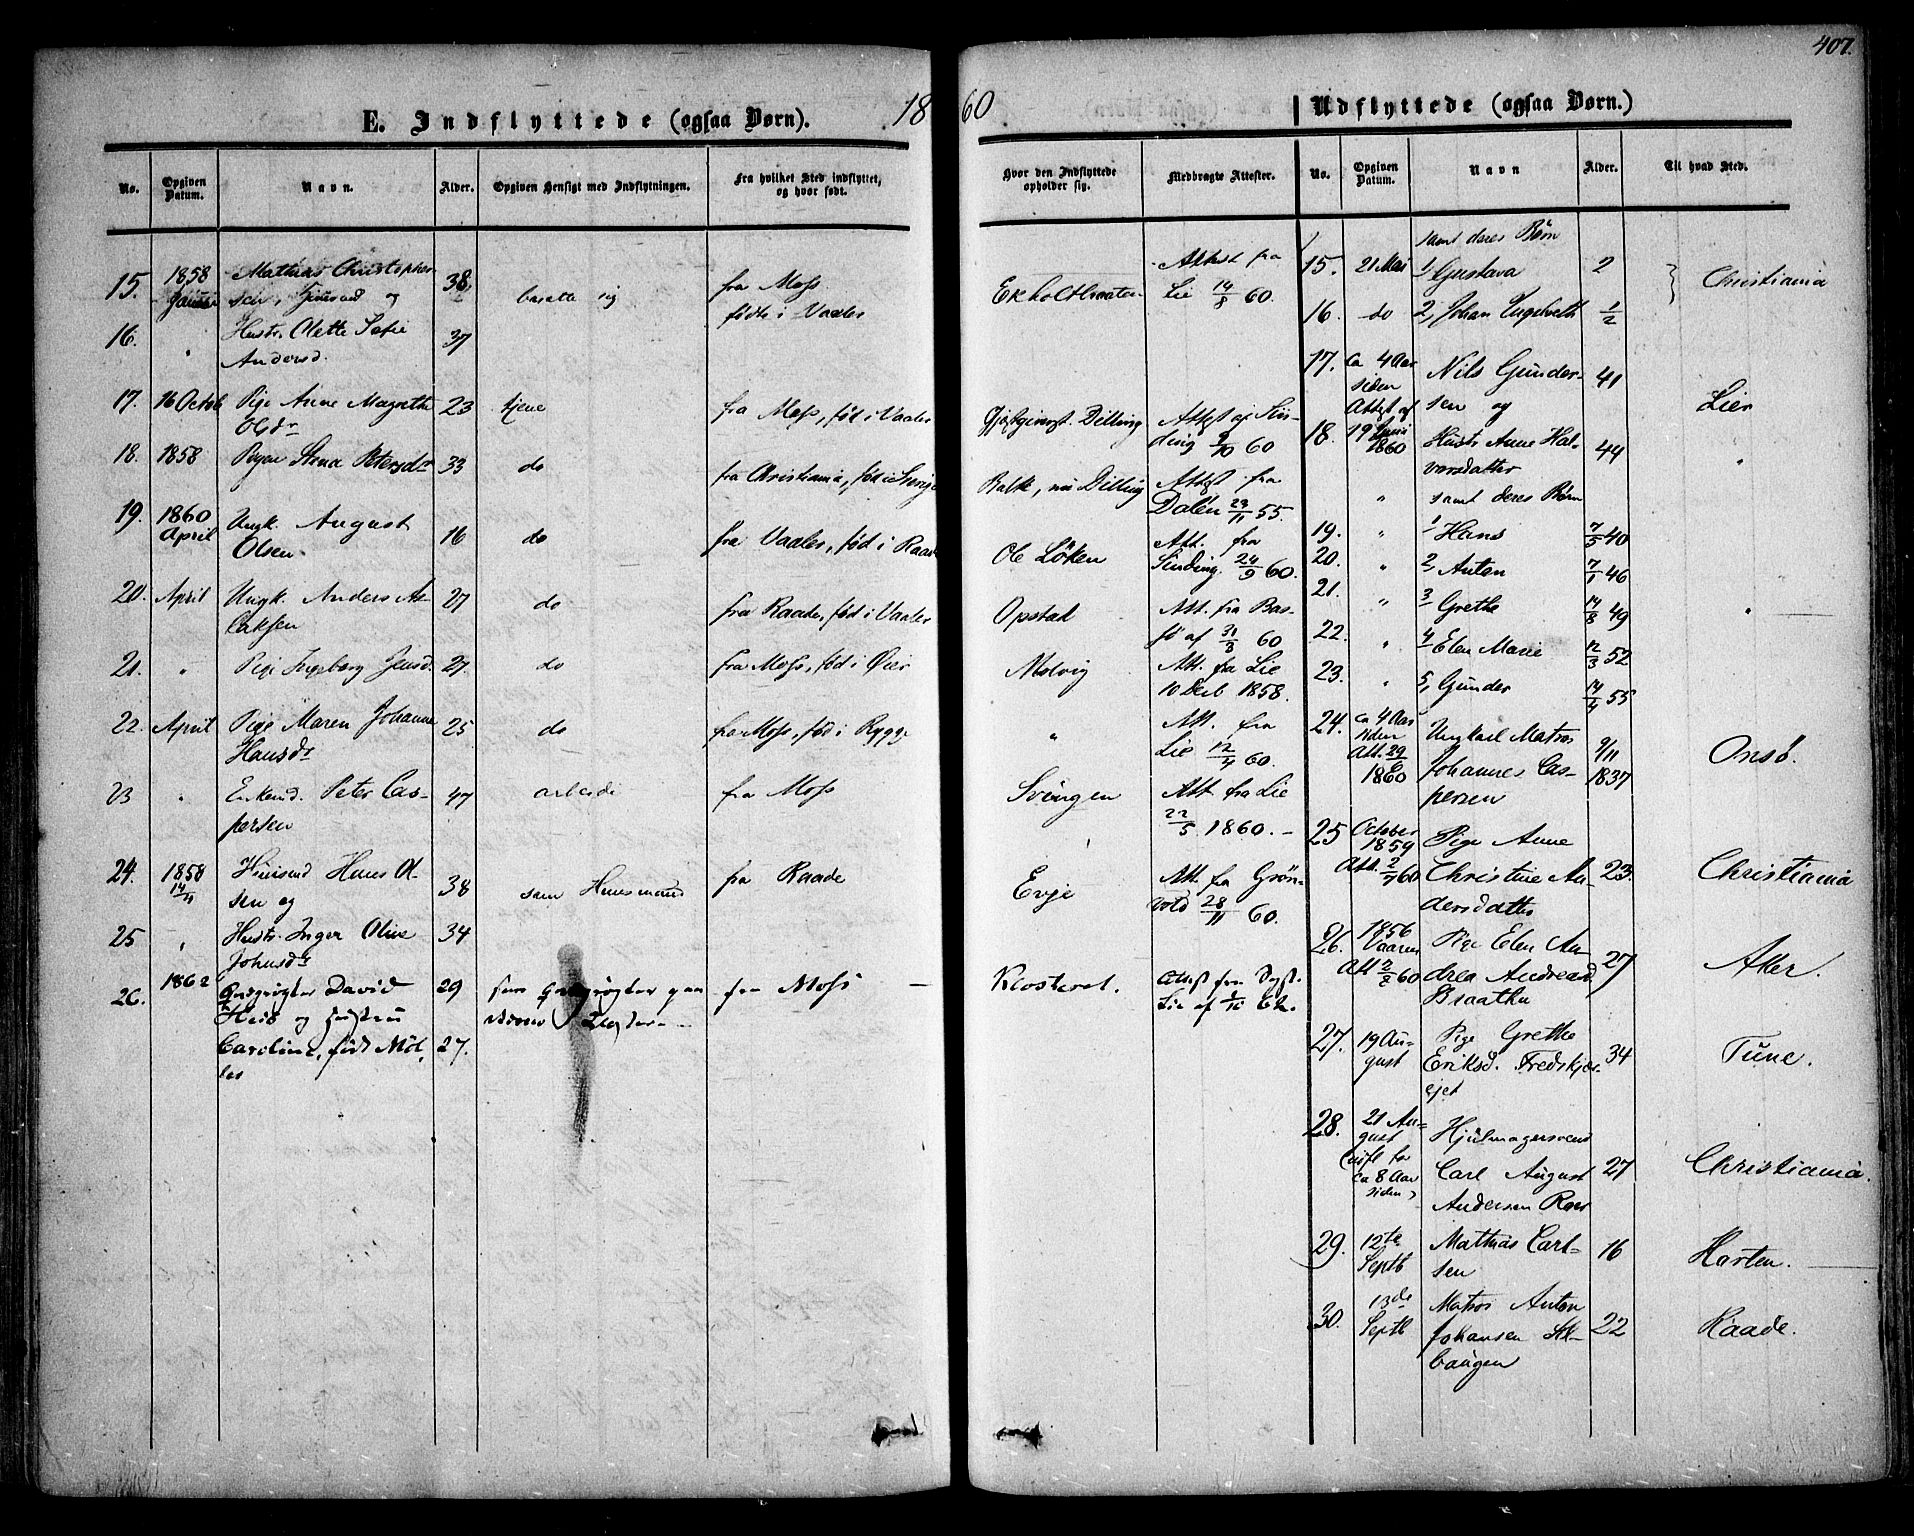 407.
E. Indflyttede (ogsaa Børn).
1860
Udflyttede (ogsaa Børn.)
No.
Opgiven Datum.
Navn.
Alder.
Opgiven Hensigt med Indflytningen.
Fra hvilket Sted indflyttet, og hvor født.
Hvor den Indflyttede opholder sig.
Medbragte Attester.
No.
Opgiven Datum.
Navn
Alder.
Til hvad Sted.
15. 1858 Mathias Christopher- 38 fra Moss
sen, og bosætte sig fødte i Vaaler
Attest fra
Lie 14/8 60.
16. " Hustr. Olette Sofie 37
Andersd.
17. 16 Octob Pige Anne Magrethe 23 tjene fra Moss, fød i Vaaler
Olsdr Dilling
ding 9/10 60
18. 1858 Pigen Stena Petersdr 33 do fra Christiania, fød i Sverige
Balke, nu Dilling Attest fra
Dalen 23/11 55.
19. 1860 Ungk. August 16 do fra Vaaler, fød i Raade
April Olsen
Ole Löken Att. fra
Sinding 24/9 60.
20. April Ungk. Anders As- 27 do fra Raade, fød i Vaaler
laksen
Opstad Att. fra Bas-
sö af 31/3 60
21. " Pige Ingeborg Jensd. 27. do fra Moss, fød i Öier
Molvig Att. fra Lie
10 Decb 1858.
22. April Pige Maren Johanne 25 do fra Moss, fød i Rygge
Hansdr
" Att. fra
Lie 12/4 60.
23 " Enkemd. Peter Cas- 47 arbeide fra Moss
persen
Svingen Att. fra Lie
22/5 1860. –
24. 1858 Huusmd Hans Ol- 38 som Huusmand fra Raade
14/4 sen og
Evje Att. fra Grön-
vold 28/11 60.
25 " Hustr. Inger Olive 34
Johnsdr
26. 1862 David 29 fra Moss –
og Hustru
Caroline, født Möl- 27.
ler
Klosteret. Attest fra
Lie af
samt deres Børn
15. 21 Mai 1 Gustava 2 Christiania
16. do 2, Johan Engelreth 1/2
17. ca 4 Aar Nils Gunder- 41 Lier
siden sen og
Attest af
18. 19 Juni Hustr Anne Hal- 44 "
1860 vorsdatter
" samt deres Børn
19. " 1 Hans 7/5 40
20. " 2 Anton 7/1 46
21. " 3 Grethe 14/8 49 "
22. " 4 Elen Marie 12/3 52
23. " 5, Gunder 14/4 55
24. ca 4 Aar Ungkarl Matros 9/11 Onsö.
siden
Att. 29/6 Johannes Cas- 1837
1860 persen
25 October Pige Anne
1859
Att. 2/7 60 Christine An- 23. Christiania
dersdatter
26. 1856 Pige Elen An- 27 Aker.
Vaaren
Att 2/8 60 drea Andreasd
Braathe
27. 19 Au- Pige Grethe 34 Tune.
gust Eriksd. Fredskjær-
ejet
28. 21 Au- Hjulmagersvend
gust
ca 8 Aar Carl August 27 Christiania.
siden) Andersen Roer
29. 12te Mathias Carl- 16 Horten.
Septb sen
30. 13de Matros Anton 22 Raade.
Septb Johansen
baugen